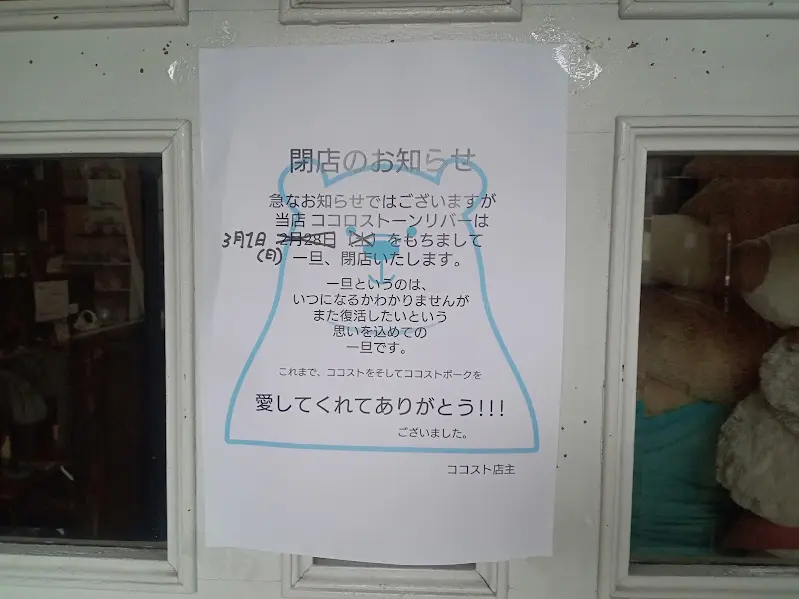 閉店のお知らせ
急なお知らせではございますが
当店 ココロストーンリバーは
3月1日 2月28日 (水) をもちまして
(日) 一旦、閉店いたします。
一旦というのは、
いつになるかわかりませんが
また復活したいという
思いを込めての
一旦です。
これまで、ココストをそしてココストポークを
愛してくれてありがとう!!!
ございました。
ココスト店主